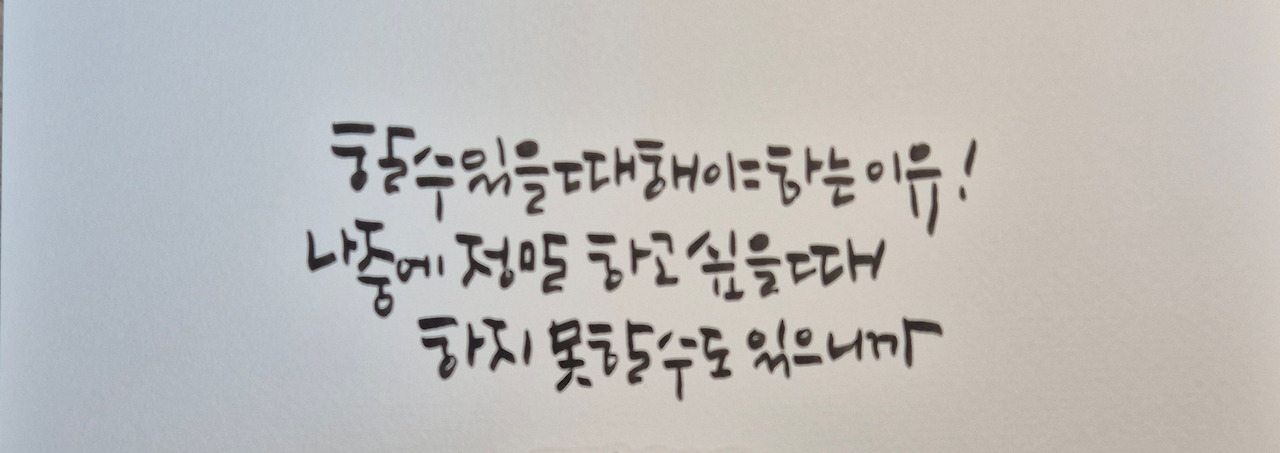 할수있을때해야하는이유!
나중에 정말 하고싶을때
하지 못할수도 있으니까